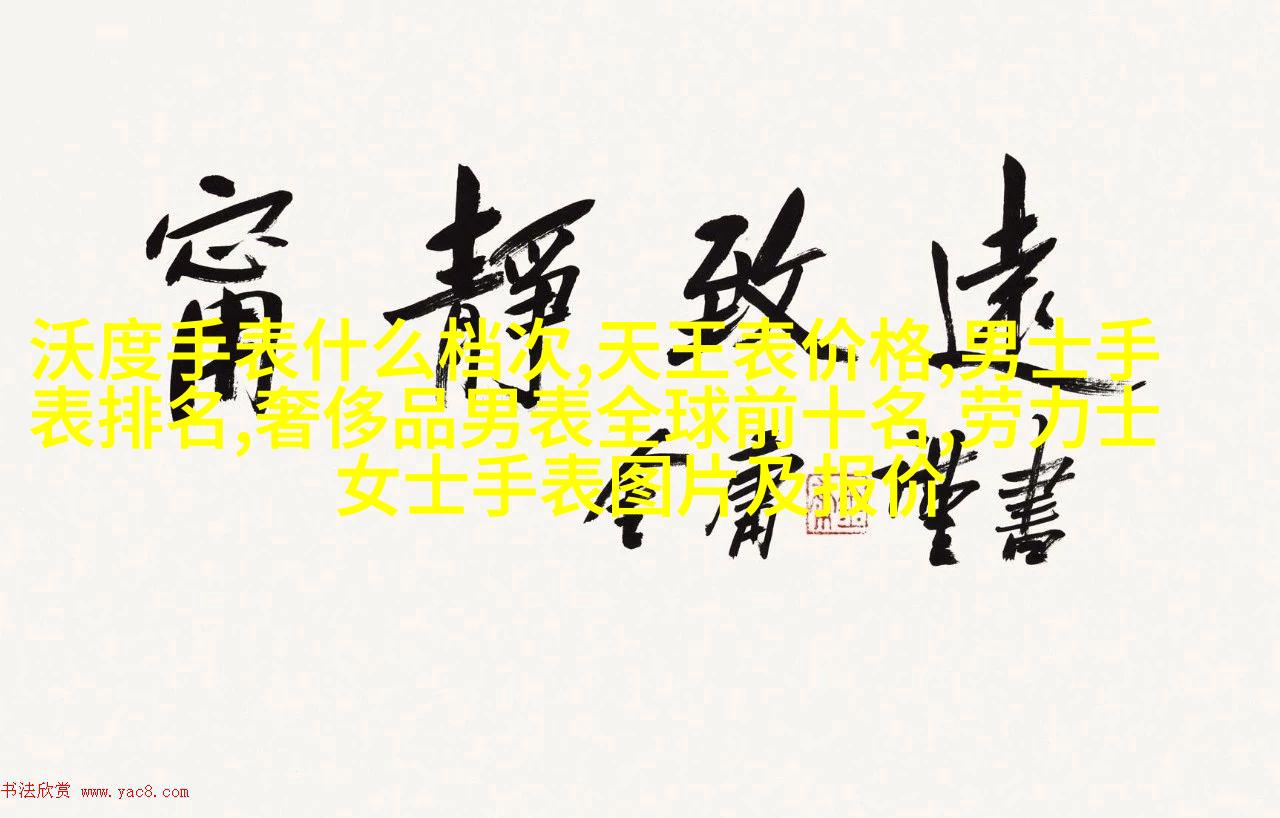 甯靜致遠
沃度手表什么档次,天王表价格,男土手
表排名,奢侈品男表全球前十名,劳力士
女士手表图片及报价
金庸 謹書
书法欣赏 www.yac8.com